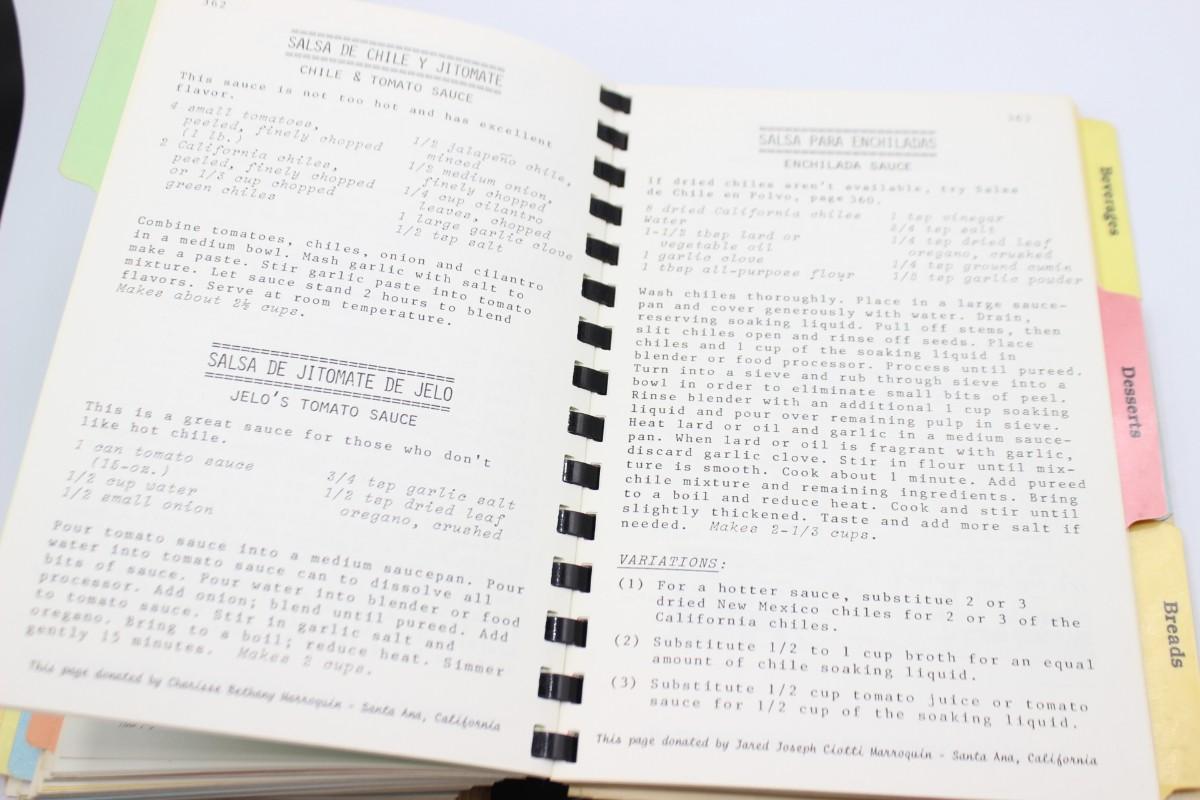 362
SALSA DE CHILE Y JITOMATE
CHILE & TOMATO SAUCE
This sauce is not too hot and has excellent
flavor.
4 small tomatoes,
peeled, finely chopped
(1 lb.)
2 California chiles,
peeled, finely chopped
or 1/3 cup chopped
green chiles
1/2 jalapeño chile,
minced
1/2 medium onion,
finely chopped
1/4 cup cilantro
leaves, chopped
1 large garlic clove
1/2 tsp salt
Combine tomatoes, chiles, onion and cilantro
in a medium bowl. Mash garlic with salt to
make a paste. Stir garlic paste into tomato
mixture. Let sauce stand 2 hours to blend
flavors. Serve at room temperature.
Makes about 2½ cups.
SALSA DE JITOMATE DE JELO
JELO'S TOMATO SAUCE
This is a great sauce for those who don't
like hot chile.
1 can tomato sauce
(15-oz.)
1/2 cup water
1/2 small onion
3/4 tsp garlic salt
1/2 tsp dried leaf
oregano, crushed
Pour tomato sauce into a medium saucepan. Pour
water into tomato sauce can to dissolve all
bits of sauce. Pour water into blender or food
processor. Add onion; blend until pureed. Add
to tomato sauce. Stir in garlic salt and
oregano. Bring to a boil; reduce heat. Simmer
gently 15 minutes. Makes 2 cups.
This page donated by Charisse Bethany Marroquin - Santa Ana, California
363
SALSA PARA ENCHILADAS
ENCHILADA SAUCE
If dried chiles aren't available, try Salsa
de Chile en Polvo, page 360.
8 dried California chiles
Water
1-1/2 tbsp lard or
vegetable oil
1 garlic clove
1 tbsp all-purpose flour
1 tsp vinegar
3/4 tsp salt
1/4 tsp dried leaf
oregano, crushed
1/4 tsp ground cumin
1/8 tsp garlic powder
Wash chiles thoroughly. Place in a large sauce-
pan and cover generously with water. Drain,
reserving soaking liquid. Pull off stems, then
slit chiles open and rinse off seeds. Place
chiles and 1 cup of the soaking liquid in
blender or food processor. Process until pureed.
Turn into a sieve and rub through sieve into a
bowl in order to eliminate small bits of peel.
Rinse blender with an additional 1 cup soaking
liquid and pour over remaining pulp in sieve.
Heat lard or oil and garlic in a medium sauce-
pan. When lard or oil is fragrant with garlic,
discard garlic clove. Stir in flour until mix-
ture is smooth. Cook about 1 minute. Add pureed
chile mixture and remaining ingredients. Bring
to a boil and reduce heat. Cook and stir until
slightly thickened. Taste and add more salt if
needed. Makes 2-1/3 cups.
VARIATIONS:
(1) For a hotter sauce, substitue 2 or 3
dried New Mexico chiles for 2 or 3 of the
California chiles.
(2) Substitute 1/2 to 1 cup broth for an equal
amount of chile soaking liquid.
(3) Substitute 1/2 cup tomato juice or tomato
sauce for 1/2 cup of the soaking liquid.
This page donated by Jared Joseph Ciotti Marroquin - Santa Ana, California
Beverages
Desserts
Breads